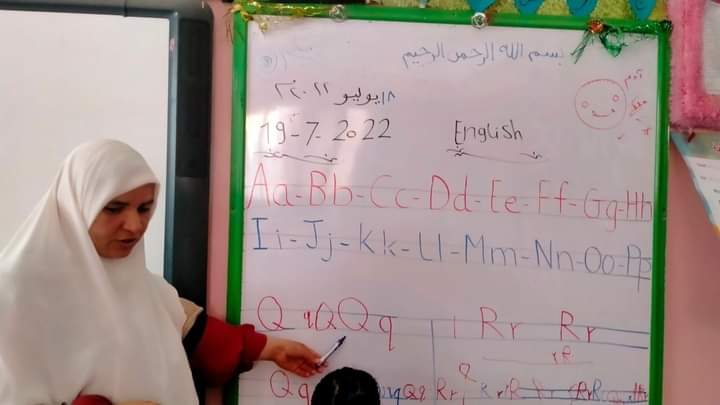 بسم الله الرحمن الرحيم
١٨ يوليو ٢٠٢٢
19-7-2022 English
Aa-Bb-Cc-Dd-Ee-Ff-Gg-Hh
Ii-Jj-Kk-Ll-Mm-Nn-Oo-Pp
Q q Q Q q Rr Rr
rR
Qq qQq Rr